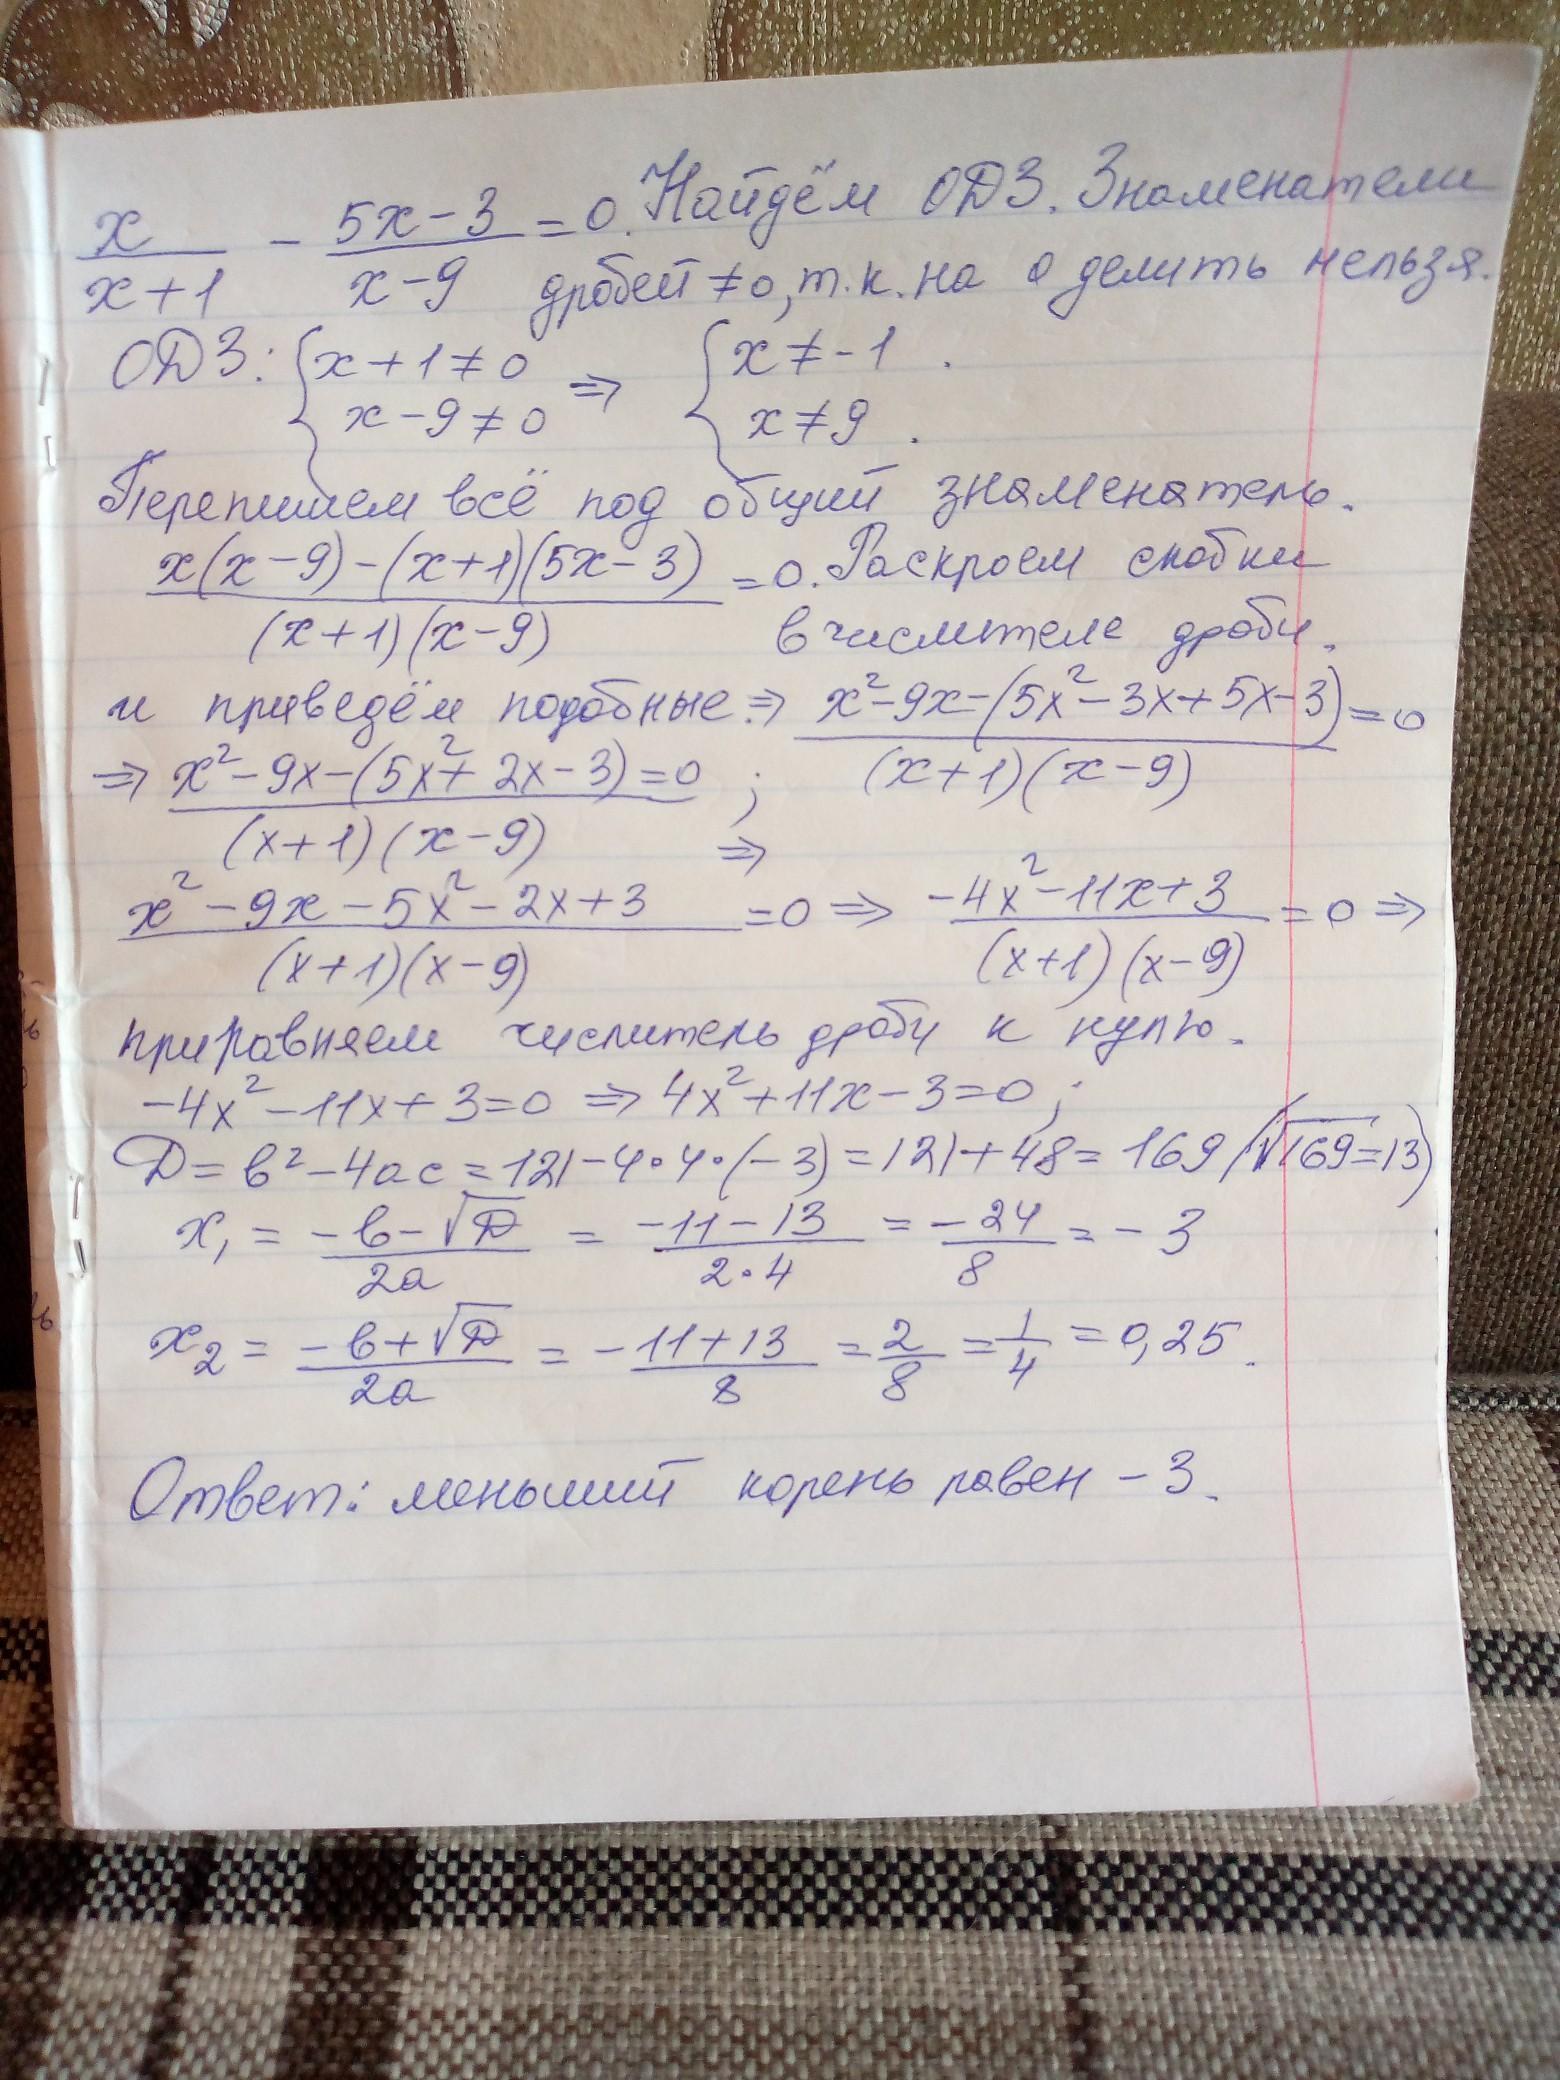 x/(x+1) − (5x−3)/(x−9) = 0. Найдём ОДЗ. Знаменатели
дробей ≠0, т.к. на 0 делить нельзя.
ОДЗ: { x+1≠0 ⇒ { x≠−1.
x−9≠0 x≠9.
Перепишем всё под общий знаменатель.
(x(x−9)−(x+1)(5x−3))/((x+1)(x−9)) =0. Раскроем скобки
в числителе дроби.
и приведём подобные. ⇒ (x²−9x−(5x²−3x+5x−3))/((x+1)(x−9)) =0
⇒ (x²−9x−(5x²+2x−3)=0)/((x+1)(x−9)) ; ⇒
(x²−9x−5x²−2x+3)/((x+1)(x−9)) =0 ⇒ (−4x²−11x+3)/((x+1)(x−9)) = 0 ⇒
приравняем числитель дроби к нулю.
−4x²−11x+3=0 ⇒ 4x²+11x−3=0;
D=b²−4ac=121−4·4·(−3)=121+48=169 (√169=13)
x₁ = (−b−√D)/2a = (−11−13)/(2·4) = −24/8 = −3
x₂ = (−b+√D)/2a = (−11+13)/8 = 2/8 = 1/4 = 0,25.
Ответ: меньший корень равен −3.